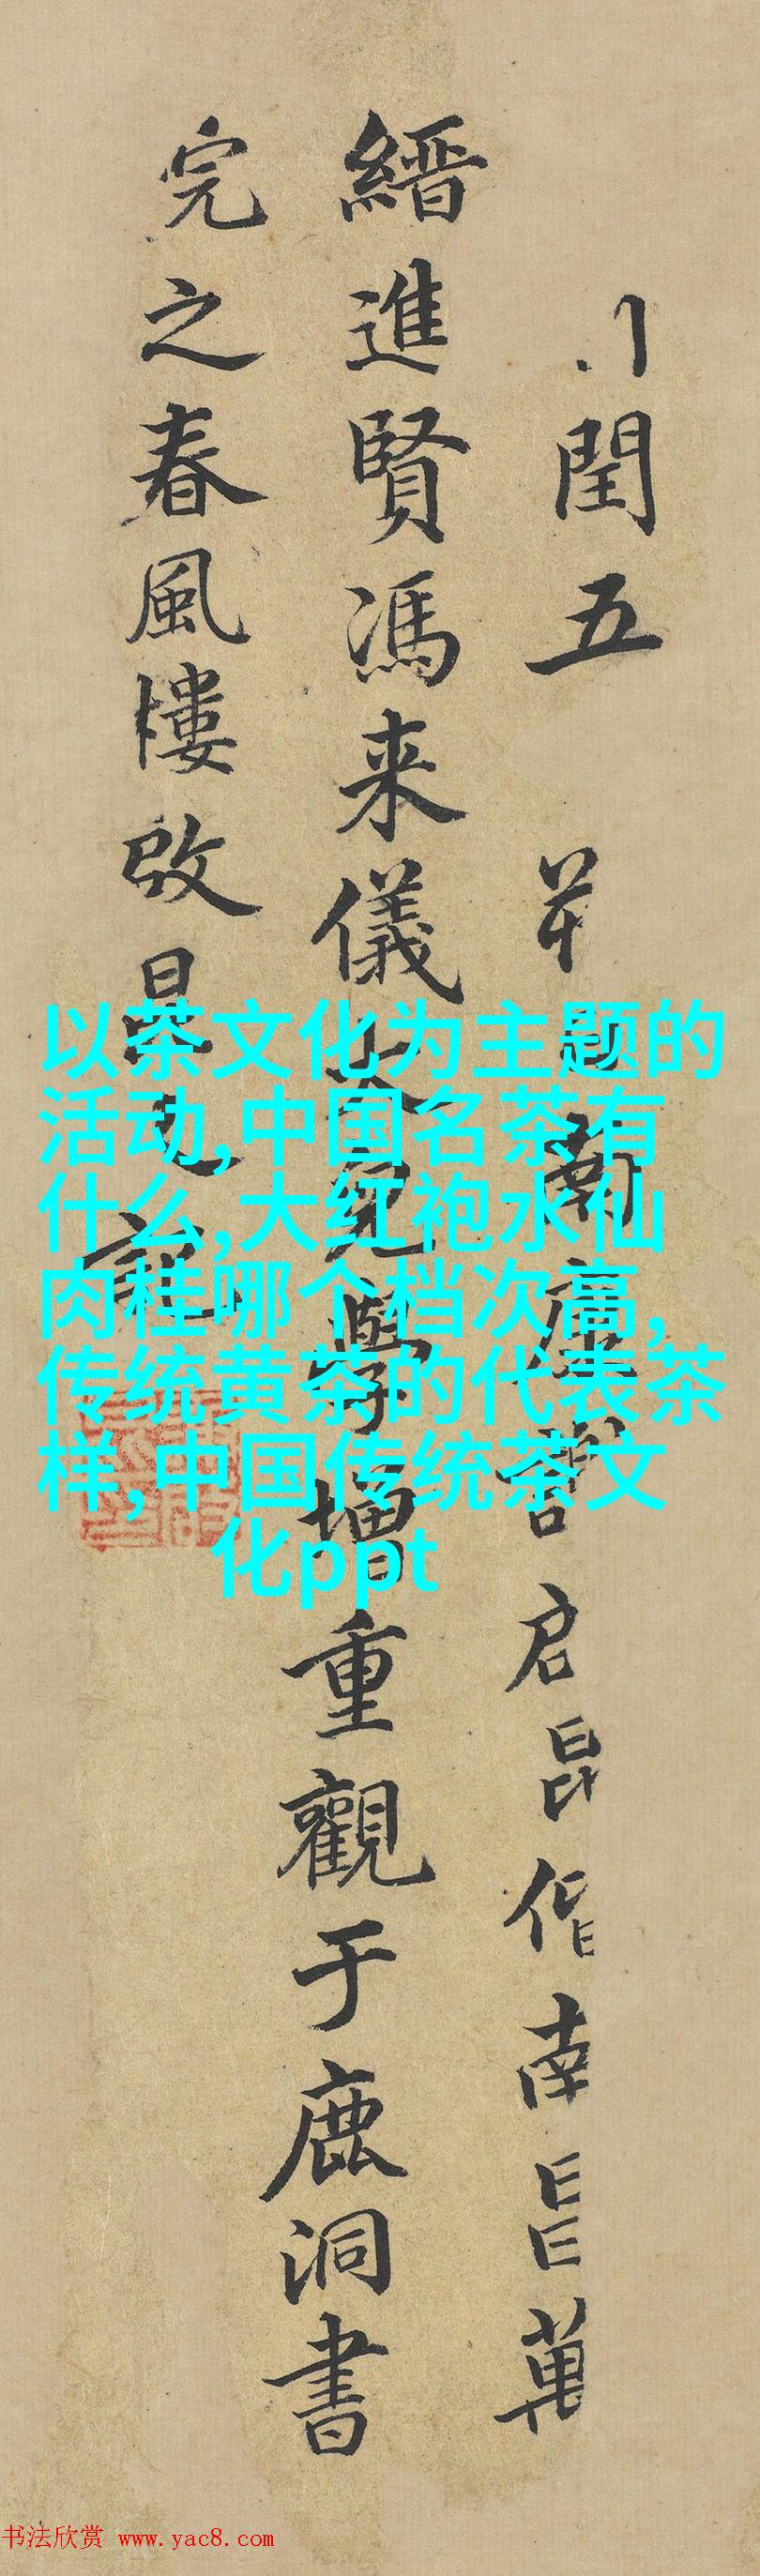 閏五
南康
启昆偕南昌萬
縉進賢馮来儀
學
重觀于鹿洞書
完之春風樓啟昆
記
以茶文化为主题的
活动,中国名茶有
什么,大红袍水仙
肉桂哪个档次高,
传统黄茶的代表茶
样,中国传统茶文
化ppt
书法欣赏 www.yac8.com